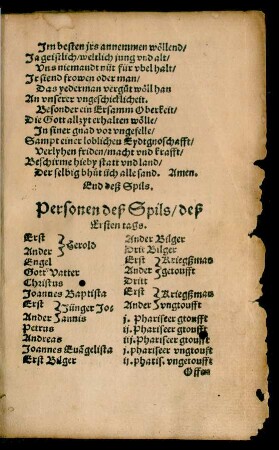 Im besten jrs annemmen wöllend/
Ja geistlich/weltlich jung vnd alt/
Vns niemandt nüt für vbel halt/
Ir siend frowen oder man/
Das yederman vergüt wöll han
An vnserer vngeschicklicheit.
Besonder ein Ersamm Oberkeit/
Die Gott allzyt erhalten wölle/
In siner gnad vor vngefelle/
Sampt einer loblichen Eydtgnoschafft/
Verlyhen friden/macht vnd krafft/
Beschirme hieby statt vnd land/
Der selbig bhüt üch alle sand. Amen.
End deß Spils.
Personen deß Spils/deß
Ersten tags.
Erst
Ander
Herold
Engel
Gott Vatter
Christus
Joannes Baptista
Erst
Ander
Jünger Joannis
Petrus
Andreas
Joannes Euãgelista
Erst Bilger
Ander Bilger
Drit Bilger
Erst
Ander
Kriegßman
getoufft
Dritt
Erst
Ander
Kriegßman
vngtoufft
j. Phariseer gtoufft
ij. Phariseer gtoufft
iij. Phariseer gtoufft
j. phariseer vngtoufft
ij. pharis. vngetoufft